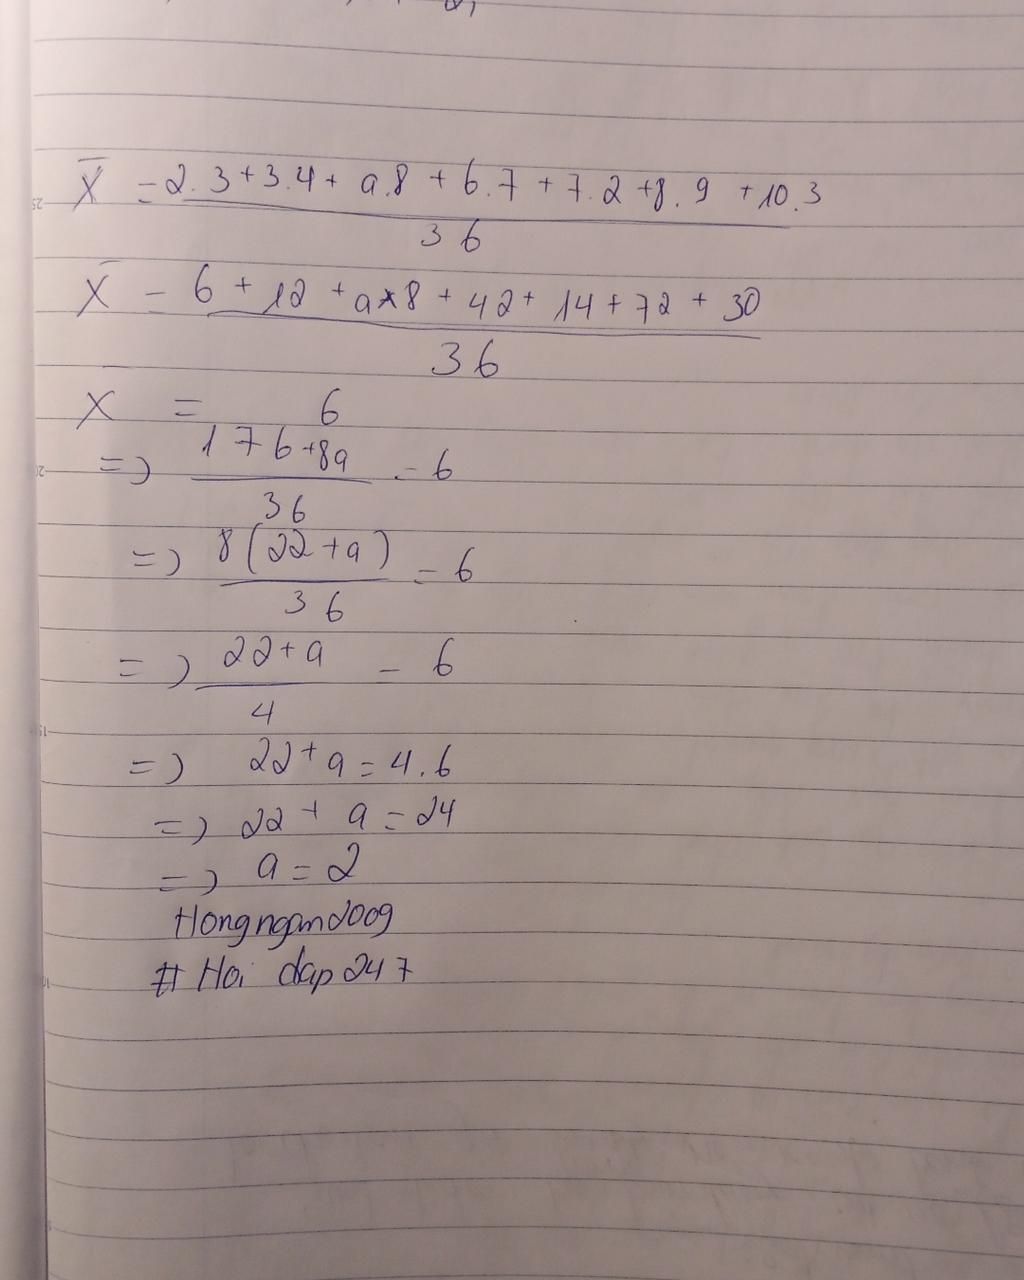 X̄ = 2.3+3.4+ a.8 + 6.7 + 7.2 +8.9 +10.3
36
X̄ = 6 + 12 + a×8 + 42 + 14 + 72 + 30
36
X = 6
=> 176+8a = 6
36
=> 8(22+a) = 6
36
=> 22+a = 6
4
=> 22+a = 4.6
=> 22 + a = 24
=> a = 2
Hongngan2009
# Hoi dap 247